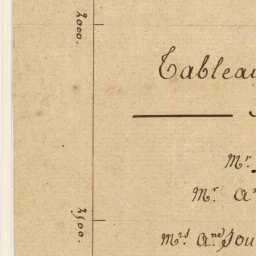 2000.
Tableau
Mr.
Mr. A
2500.
Mrs. Ane Jou